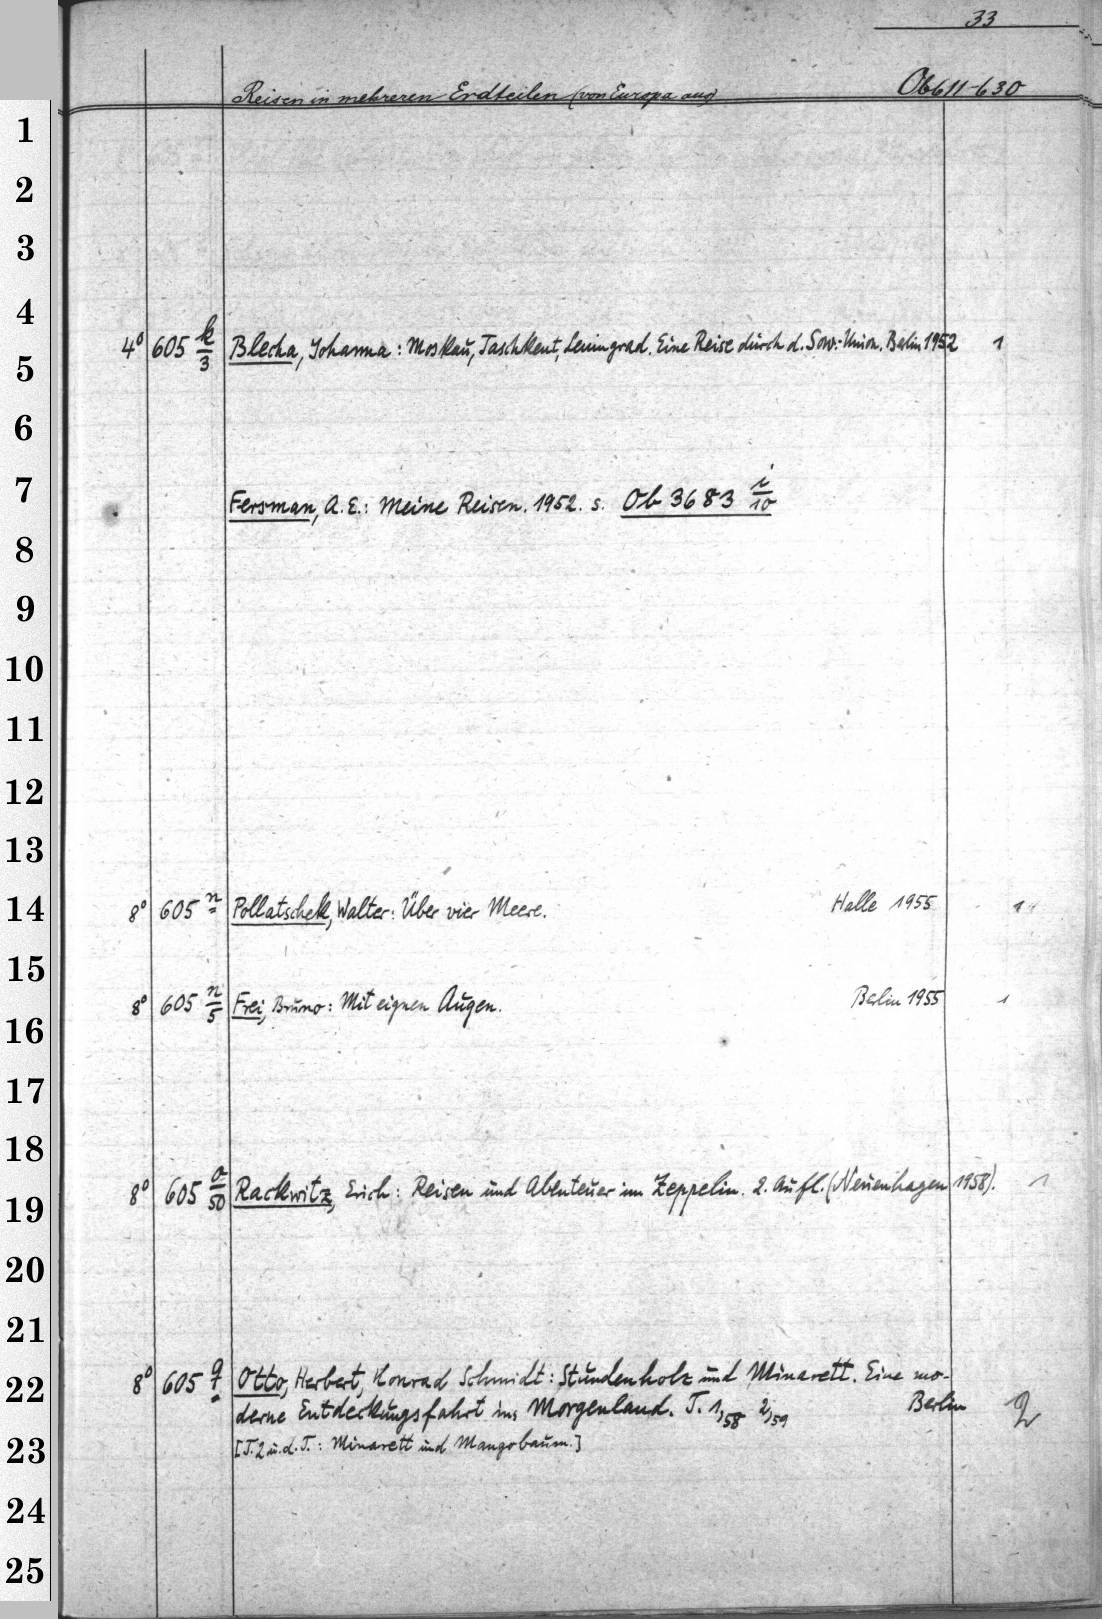 33
Reisen in mehreren Erdteilen (von Europa aus) Ob 611-630
1
2
3
4
4° 605 k/3 Blecha, Johanna: Moskau, Taschkent, Leningrad. Eine Reise durch d. Sow.-Union. Berlin 1952 1
5
6
7
Fersman, A. E.: Meine Reisen. 1952. s. Ob 3683 i/10
8
9
10
11
12
13
14
8° 605 n Pollatschek, Walter: Über vier Meere. Halle 1955 1
15
8° 605 n/5 Frei, Bruno: Mit eignen Augen. Berlin 1955 1
16
17
18
8° 605 o/50 Rackwitz, Erich: Reisen und Abenteuer im Zeppelin. 2. Aufl. (Neuenhagen 1958). 1
19
20
21
8° 605 q Otto, Herbert, Konrad Schmidt: Stundenholz und Minarett. Eine mo-
22
derne Entdeckungsfahrt ins Morgenland. T. 1,58 2,59 Berlin 2
23
[T. 2 u. d. T.: Minarett und Mangobaum.]
24
25